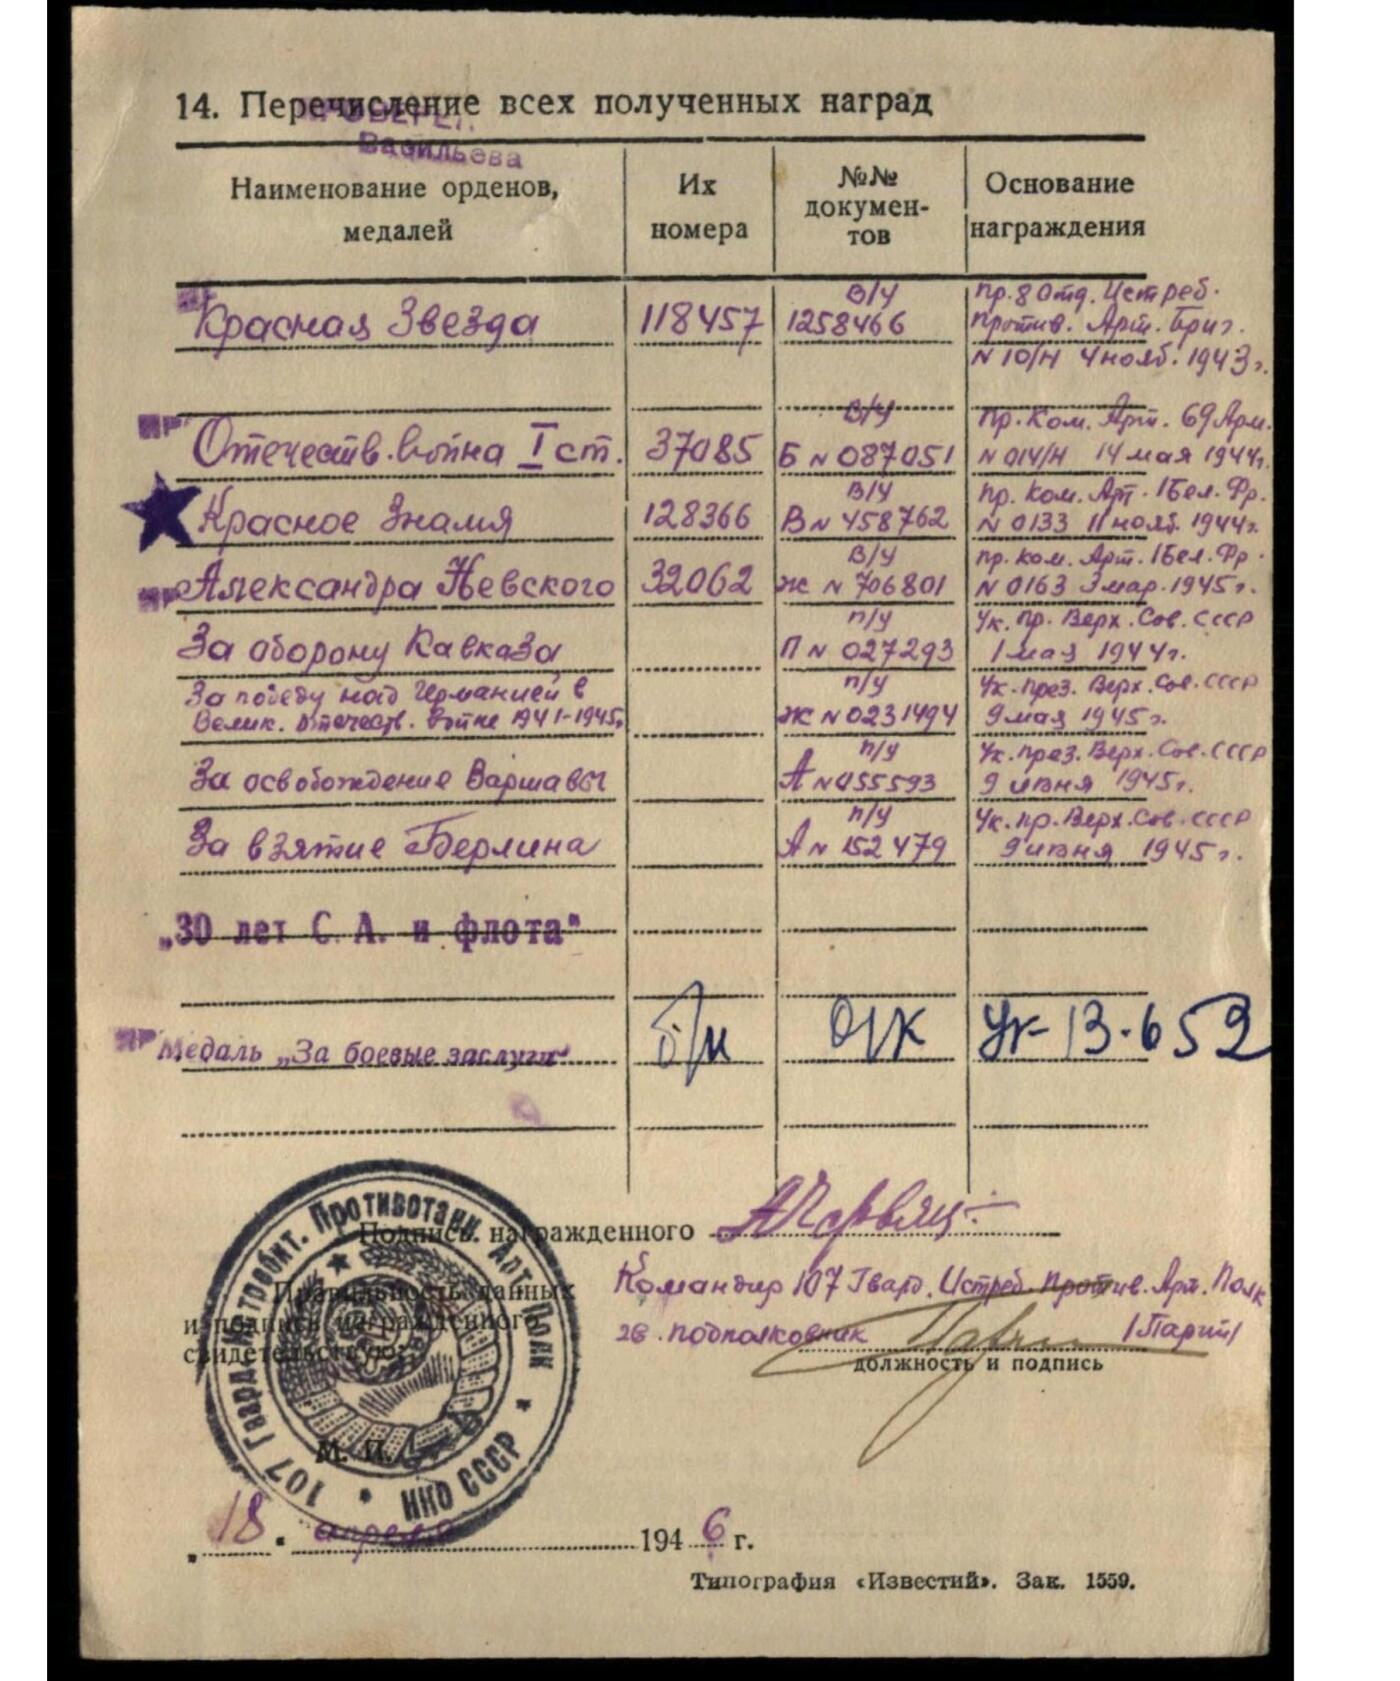 14. Перечисление всех полученных наград
Васильева
Наименование орденов, медалей
Их номера
№№ докумен-тов
Основание награждения
Красная Звезда 118457 В/У 1258466 Пр. 8 Отд. Истреб.
Против. Арт. Бриг.
N 10/Н 4 нояб. 1943 г.
Отечеств. война I ст. 37085 В/У Б N 087051 Пр. Ком. Арт. 69 Арм.
N 014/Н 14 мая 1944г.
Красное Знамя 128366 В/У В N 458762 Пр. Ком. Арт. 1 Бел. Фр.
N 0133 11 нояб. 1944г.
Александра Невского 32062 В/У Ж N 706801 Пр. Ком. Арт. 1 Бел. Фр.
N 0163 3 мар. 1945 г.
За оборону Кавказа П/У П N 027293 Ук. Пр. Верх. Сов. СССР
1 мая 1944г.
За победу над Германией в
Велик. Отечеств. Войне 1941-1945г. П/У Ж N 0231494 Ук. През. Верх. Сов. СССР
9 мая 1945 г.
За освобождение Варшавы П/У А N 055593 Ук. През. Верх. Сов. СССР
9 июня 1945г.
За взятие Берлина П/У А N 152479 Ук. Пр. Верх. Сов. СССР
9 июня 1945 г.
„30 лет С. А. и флота"
Медаль „За боевые заслуги" б/н
Подпись награжденного
Правильность данных
и подписи награжденного
свидетельствую:
Командир 107 Гвард. Истреб. Против. Арт. Полк
гв. подполковник
должность и подпись
107 Гвард. Истребит. Противотанк. Арт. Полк
НКО СССР
М. П.
„18" апреля 1946 г.
Типография «Известий». Зак. 1559.